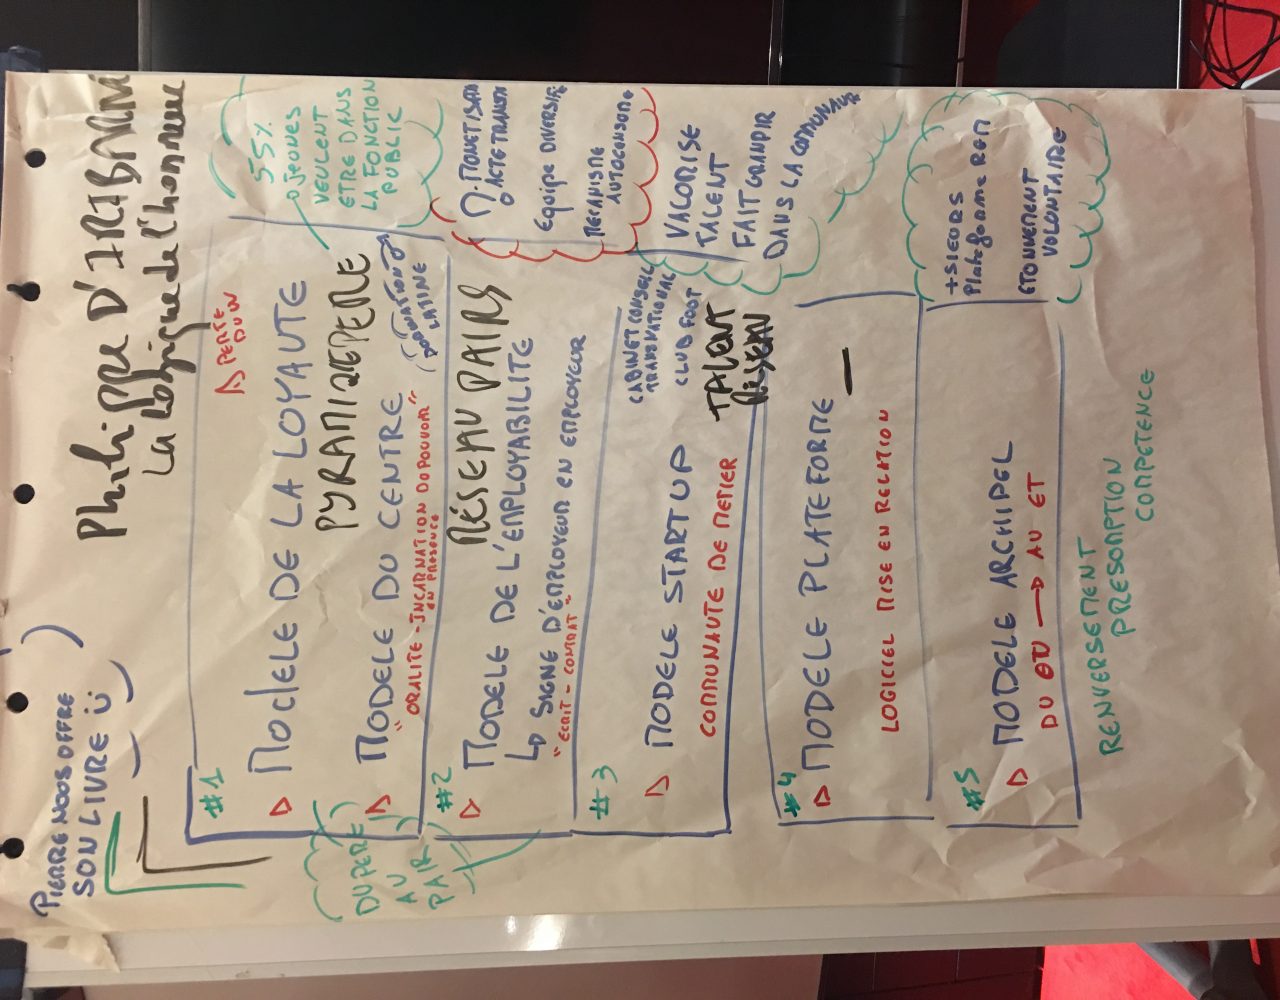 PIERRE NOUS OFFRE
SON LIVRE
Philippe D'IRIBARNE
La logique de l'honneur
#1
PERTE
DU LIN
MODELE DE LA LOYAUTE
PYRAMIDE PERE
MODELE DU CENTRE
"ORALITE - INCARNATION DU POUVOIR"
EN PRESENCE
55%
JEUNES
VEULENT
ETRE DANS
LA FONCTION
PUBLIC
DU PERE
AU
PAIR
#2
RÉSEAU PAIRS
MODELE DE L'EMPLOYABILITE
↳ SIGNE D'EMPLOYEUR EN EMPLOYEUR
"ECRIT - CONTRAT"
EQUIPE DIVERSIF
MECANISME
AUTOCONSOME
#3
CABINET CONSEIL
TRANSNATIONAL
CLUB FOOT
TALENT
RÉSEAU
MODELE STARTUP
COMMUNAUTE DE METIER
VALORISE
TALENT
FAIT GRANDIR
DANS LA COMMUNAUTE
#4
MODELE PLATEFORME
LOGICIEL MISE EN RELATION
#5
MODELE ARCHIPEL
DU OU → AU ET
+SIEURS
Plateforme REM
ETONNEMENT
VOLONTAIRE
RENVERSEMENT
PRESOMPTION
COMPETENCE